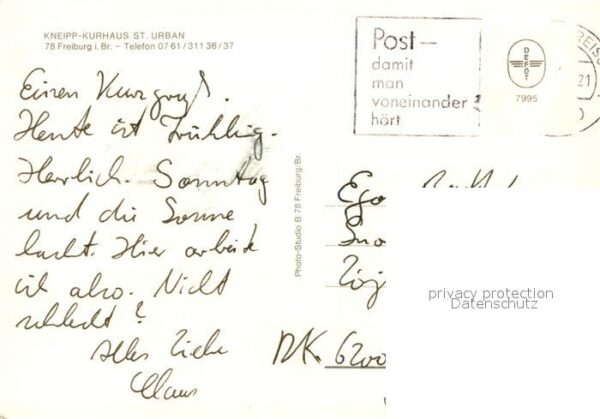 KNEIPP-KURHAUS ST. URBAN
78 Freiburg i. Br. – Telefon 07 61 / 311 36 / 37
Post –
damit
man
voneinander
hört
DEFOT
7995
21
Einen Kurzgruß.
Heute ist Frühling.
Herrlich. Sonntag
und die Sonne
lacht. Hier arbeite
ich also. Nicht
schlecht?
Alles Liebe
Claus
Photo-Studio B. 78 Freiburg/Br.
DK. 6200
privacy protection
Datenschutz